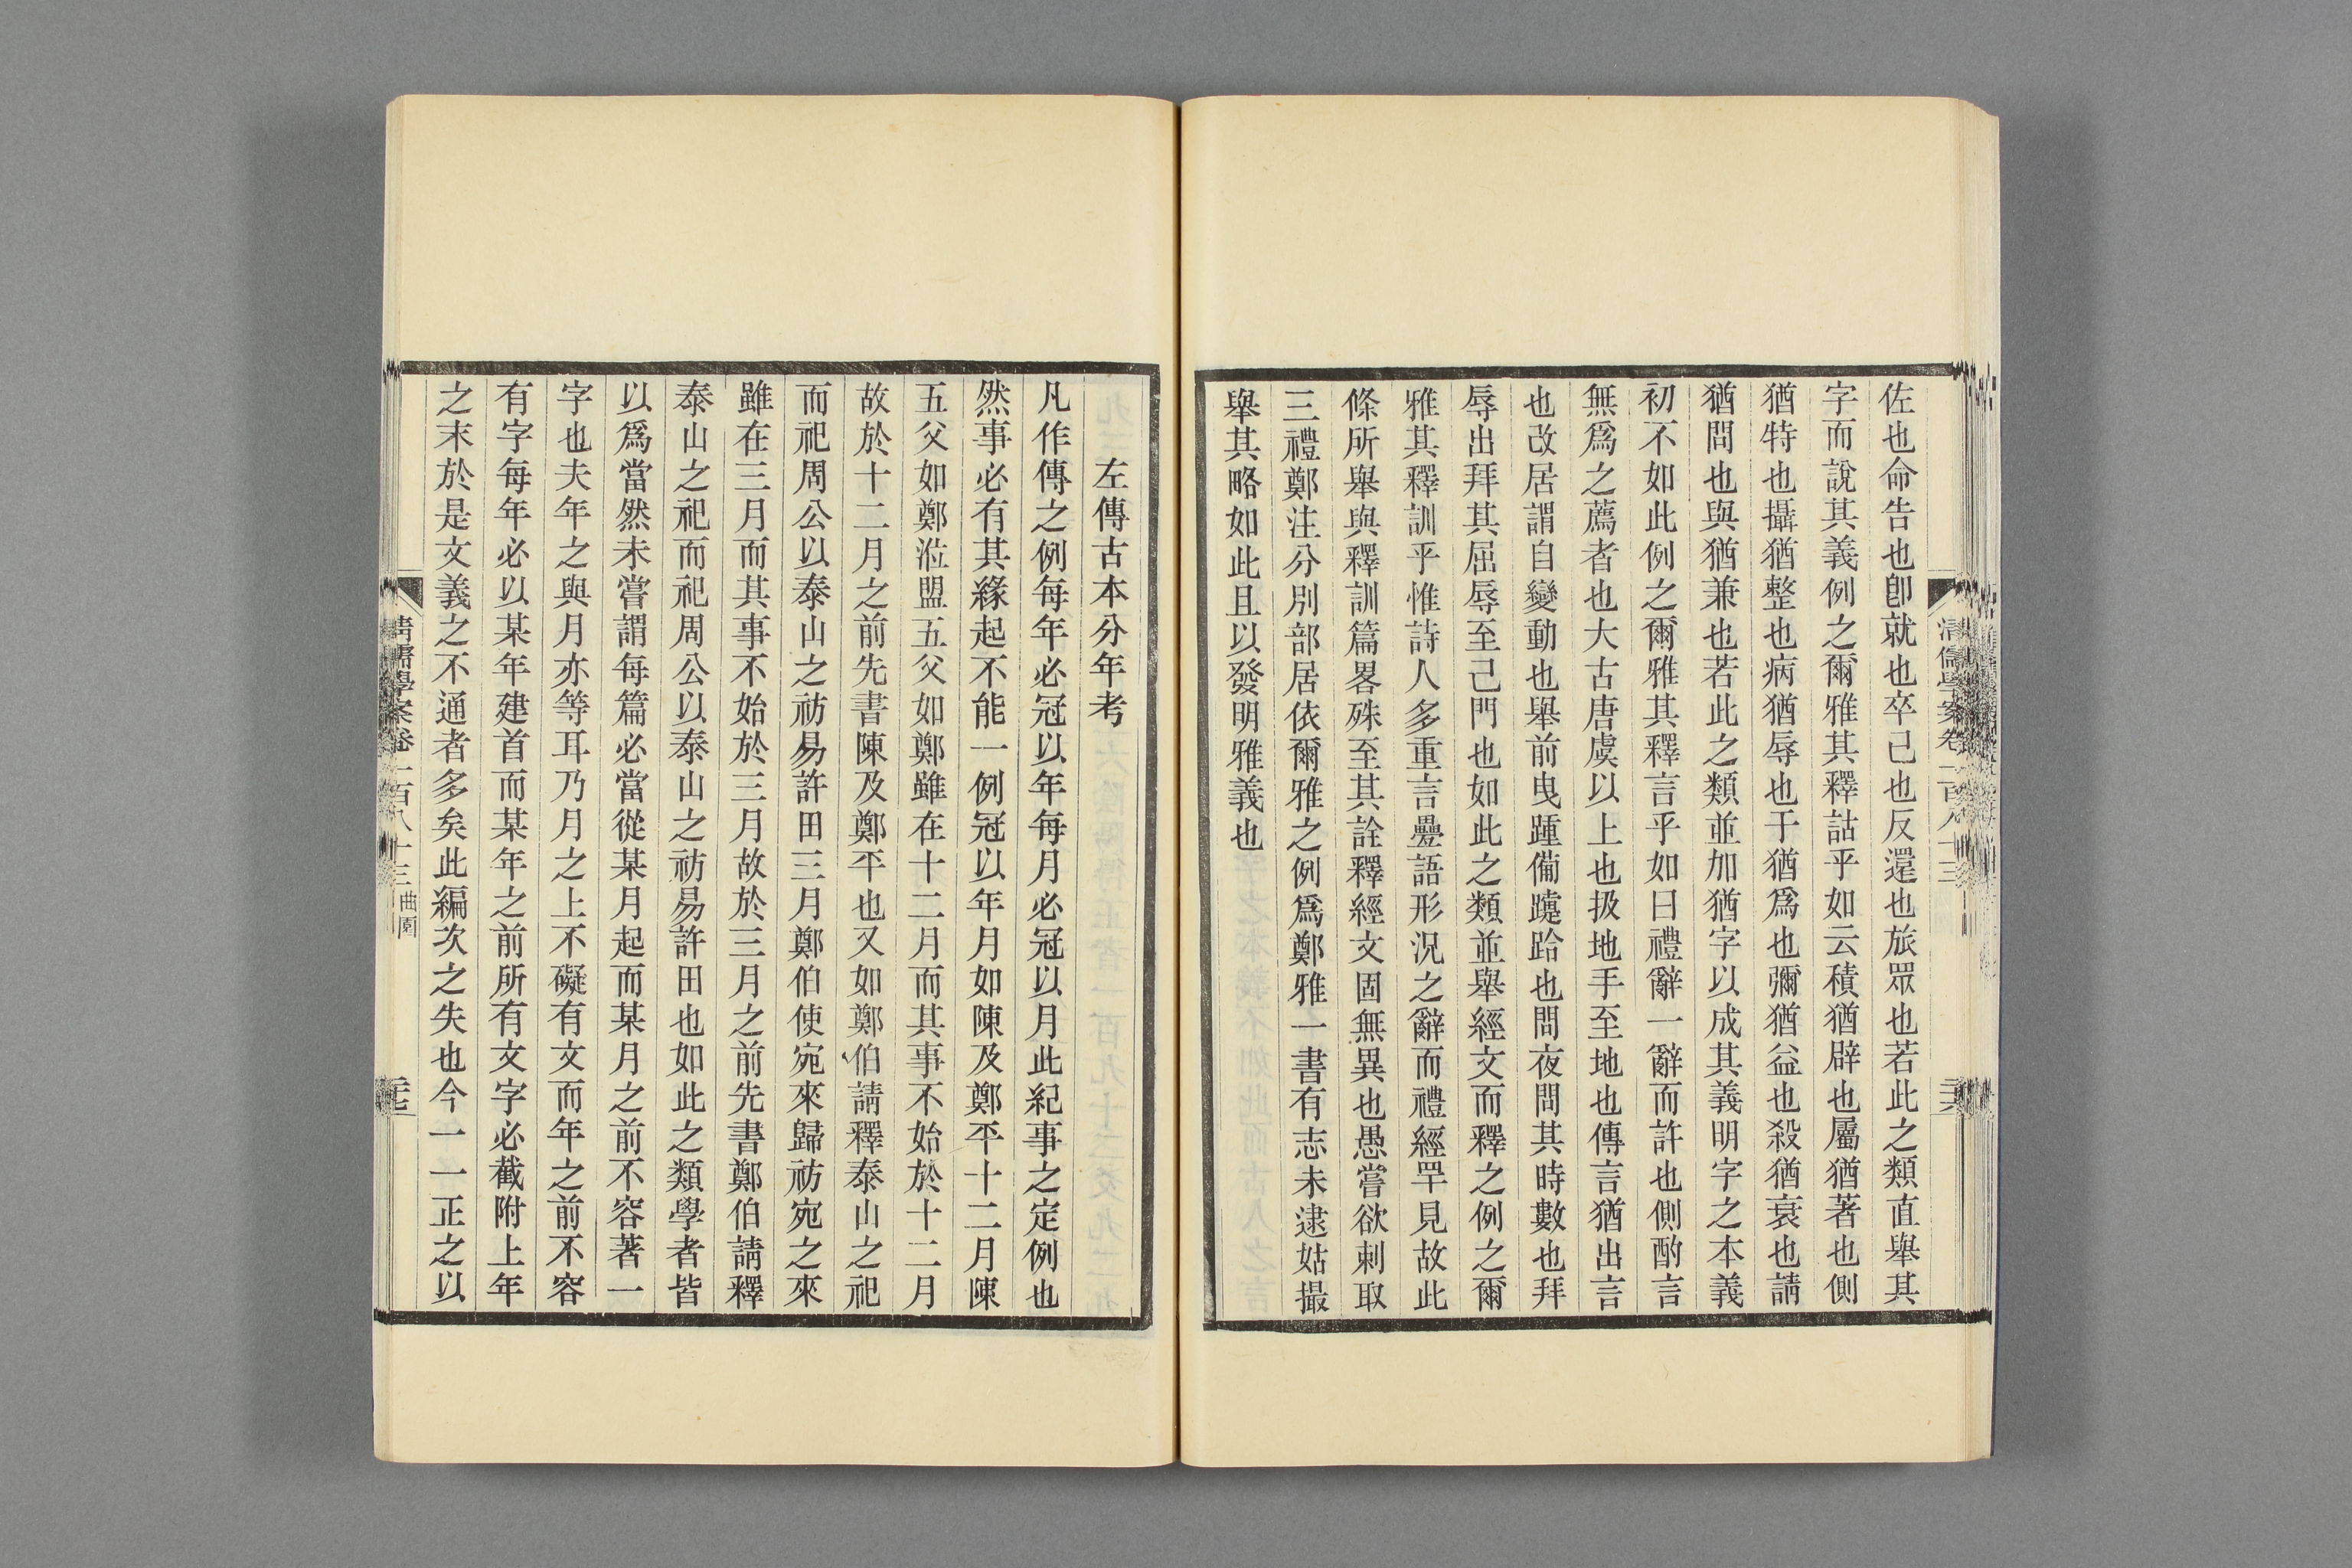 佐也命告也卽就也卒已也反還也旅眾也若此之類直舉其
字而說其義例之爾雅其釋詁乎如云積猶辟也屬猶著也側
猶特也攝猶整也病猶辱也于猶爲也彌猶益也殺猶衰也請
猶問也與猶兼也若此之類並加猶字以成其義明字之本義
初不如此例之爾雅其釋言乎如曰禮辭一辭而許也側酌言
無爲之薦者也大古唐虞以上也扱地手至地也傳言猶出言
也改居謂自變動也舉前曳踵備躓跲也問夜問其時數也拜
辱出拜其屈辱至己門也如此之類並舉經文而釋之例之爾
雅其釋訓乎惟詩人多重言疊語形況之辭而禮經罕見故此
條所舉與釋訓篇畧殊至其詮釋經文固無異也愚嘗欲刺取
三禮鄭注分別部居依爾雅之例爲鄭雅一書有志未逮姑撮
舉其略如此且以發明雅義也
清儒學案卷一百八十三
三六
左傳古本分年考
凡作傳之例每年必冠以年每月必冠以月此紀事之定例也
然事必有其緣起不能一例冠以年月如陳及鄭平十二月陳
五父如鄭涖盟五父如鄭雖在十二月而其事不始於十二月
故於十二月之前先書陳及鄭平也又如鄭伯請釋泰山之祀
而祀周公以泰山之祊易許田三月鄭伯使宛來歸祊宛之來
雖在三月而其事不始於三月故於三月之前先書鄭伯請釋
泰山之祀而祀周公以泰山之祊易許田也如此之類學者皆
以爲當然未嘗謂每篇必當從某月起而某月之前不容著一
字也夫年之與月亦等耳乃月之上不礙有文而年之前不容
有字每年必以某年建首而某年之前所有文字必截附上年
之末於是文義之不通者多矣此編次之失也今一一正之以
清儒學案卷一百八十三 曲園
三七